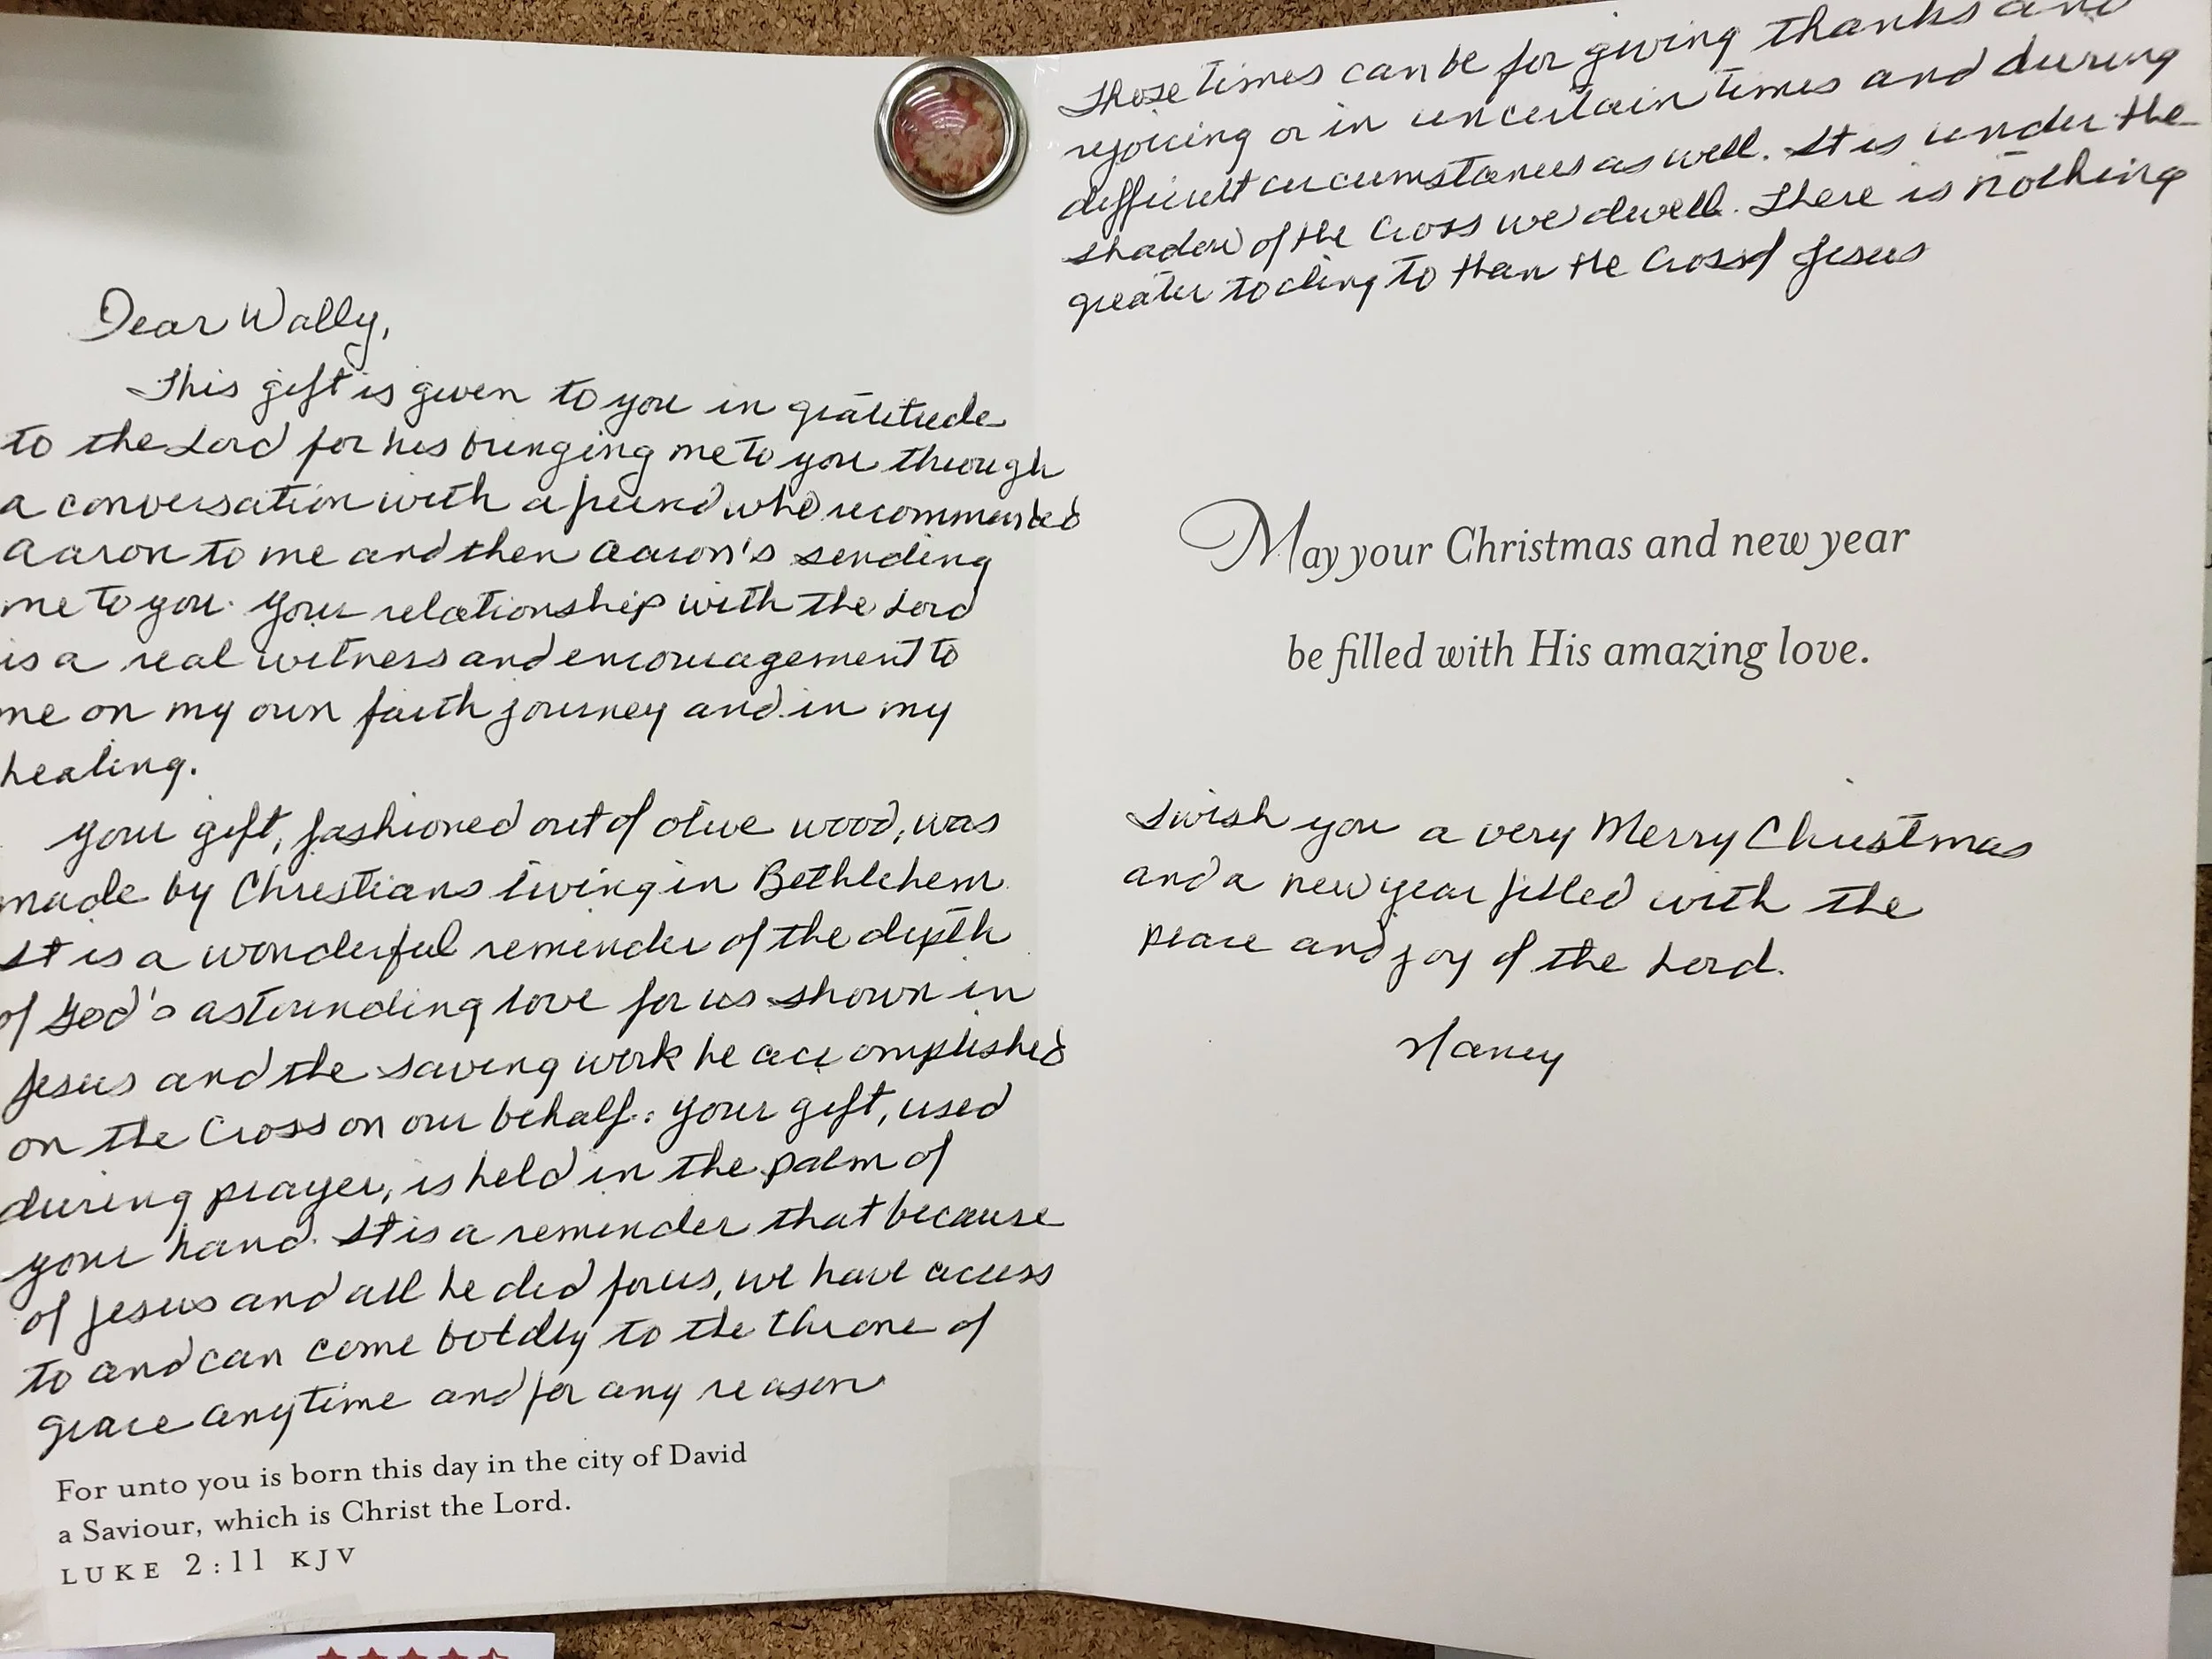 Dear Wally,
This gift is given to you in gratitude
to the Lord for his bringing me to you through
a conversation with a friend who recommended
Aaron to me and then Aaron's sending
me to you. Your relationship with the Lord
is a real witness and encouragement to
me on my own faith journey and in my
healing.
Your gift, fashioned out of olive wood, was
made by Christians living in Bethlehem.
It is a wonderful reminder of the depth
of God's astounding love for us shown in
Jesus and the saving work he accomplished
on the Cross on our behalf. Your gift, used
during prayer, is held in the palm of
your hand. It is a reminder that because
of Jesus and all he did for us, we have access
to and can come boldly to the throne of
grace anytime and for any reason
For unto you is born this day in the city of David
a Saviour, which is Christ the Lord.
LUKE 2:11 KJV
Those times can be for giving thanks and
rejoicing or in uncertain times and during
difficult circumstances as well. It is under the
shadow of the Cross we dwell. There is nothing
greater to cling to than the Cross of Jesus
May your Christmas and new year
be filled with His amazing love.
I wish you a very Merry Christmas
and a new year filled with the
peace and joy of the Lord.
Nancy